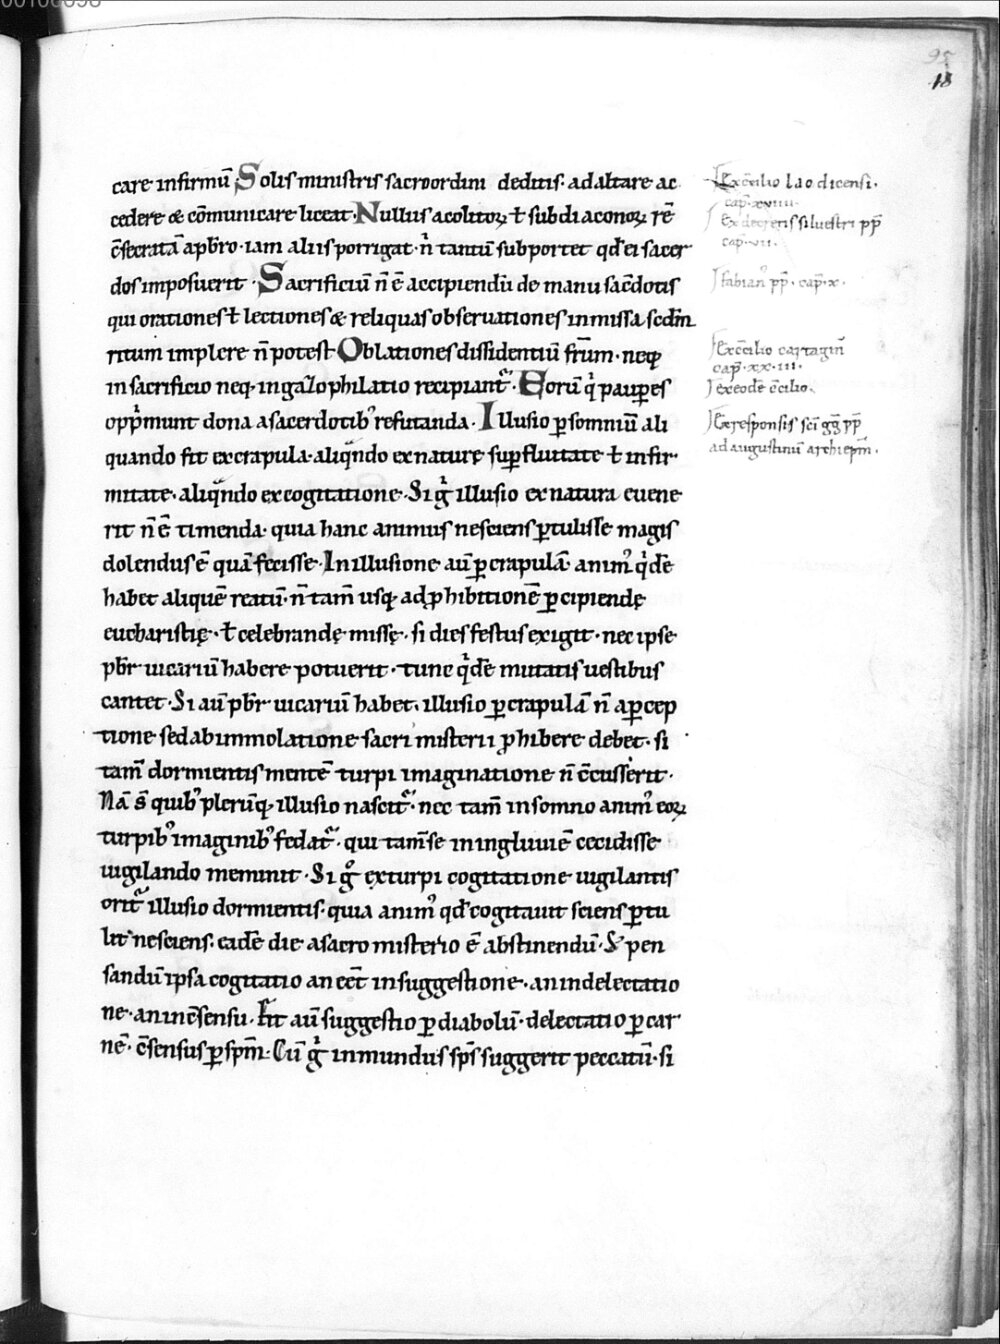 00106698
95
18
care infirmū. Solis ministris sacroordini deditis. ad altare ac
cedere & cōmunicare liceat. Nullus acolitoꝝ ł subdiaconoꝝ rē
c̄secratā a pb̄ro. iam aliis porrigat. n̄ tantū subportet qđ ei sacer
dos imposuerit. Sacrificiū n̄ ē accipiendū de manu sac̄dotis
qui orationes ł lectiones & reliquas obseruationes in missa scđm
ritum implere n̄ potest. Oblationes dissidentiū fr̄m. neqꝫ
in sacrificio neqꝫ in gazophilatio recipiant᷑. Eorū qͥ paup̱es
opp̄munt dona a sacerdotibꝰ refutanda. Illusio p̱ somniū ali
quando fit ex crapula. aliqn̄do ex naturę sup̱fluitate ł infir
mitate. aliqn̄do ex cogitatione. Si gͦ illusio ex natura euene
rit n̄ ē timenda. quia hanc animus nesciens p̱tulisse magis
dolendus ē quā fecisse. In illusione aū p̱ crapulā. animꝰ qͥdē
habet aliquē reatū. n̄ tam̄ usqꝫ ad ꝓhibitionē p̱cipiendę
eucharistię. ł celebrandę missę. si dies festus exigit. nec ipse
pb̄r uicariū habere potuerit. tunc qͥdē mutatis uestibus
cantet. Si aū pb̄r uicariū habet. illusio p̱ crapulā n̄ a p̱cep
tione sed ab immolatione sacri misterii ꝓhibere debet. si
tam̄ dormientis mentē turpi imaginatione n̄ c̄cusserit.
Nā s̄ quibꝰ plerūqꝫ illusio nascit᷑. nec tam̄ in somno animꝰ eoꝝ
turpibꝰ imaginibꝰ fedat᷑. qui tam̄ se in ingluuiē cecidisse
uigilando meminit. Si gͦ ex turpi cogitatione uigilantis
orit᷑ illusio dormientis. quia animꝰ qđ cogitauit sciens p̱tu
lit nesciens. eadē die a sacro misterio ē abstinendū. & pen
sandū ipsa cogitatio an eēt in suggestione. an in delectatio
ne. an in c̄sensu. Fit aū suggestio p̱ diabolū. delectatio p̱ car
nē. c̄sensus p̱ spm̄. Cū gͦ inmundus sp̄s suggerit peccatū. si
Ex c̄cilio laodicensi.
cap̄. xviiii.
Ex decretis siluestri pp̄
cap̄. vii.
fabianꝰ pp̄. cap̄. x.
Ex c̄cilio cartagin̄
cap̄. xx.iii.
ex eodē c̄cilio.
Ex responsis sc̄i gḡ pp̄
ad augustinū archiepm̄.